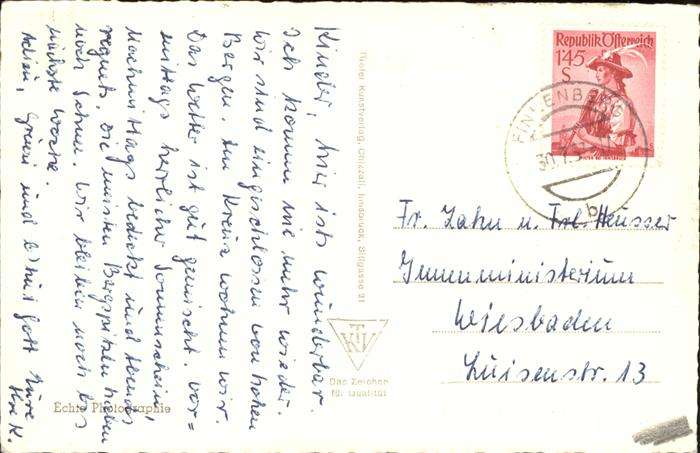 Kinder, hier ists wunderbar.
Ich komm nie mehr wieder.
Wir sind eingeschlossen von hohen
Bergen, im Kreuz wohnen wir.
Das Wetter ist gut gemischt. Vor=
mittags herrlicher Sonnenschein,
Nachmittags bedeckt und abends
regnets, die meisten Bergspitzen haben
noch Schnee. Wir bleiben noch bis
nächste Woche.
Adieu, Grüssi und b'hüt Gott Eure
Tiroler Kunstverlag, Chizzali, Innsbruck, Stiftgasse 21
TKV
Das Zeichen
für Qualität
Echte Photographie
Republik Österreich
1'45
S
FINKENBERG
30.
b
Fr. Zahn u. Frl. Heusser
Innenministerium
Wiesbaden
Luisenstr. 13